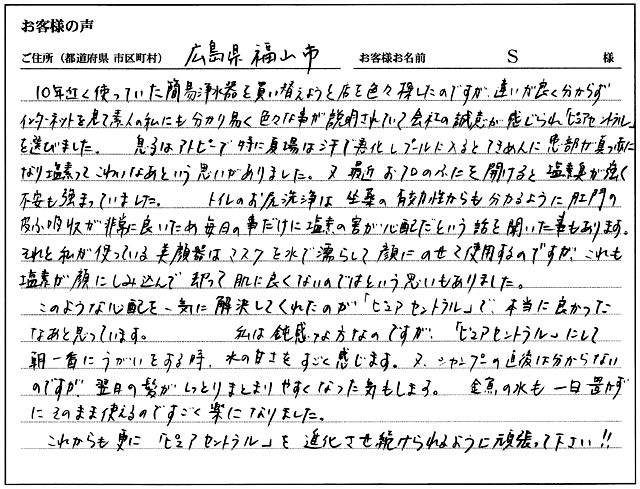 お客様の声
ご住所（都道府県 市区町村） 広島県福山市 お客様お名前 S 様
10年近く使っていた簡易浄水器を買い替えようと店を色々探したのですが、違いが良く分からず
インターネットを見て素人の私にも分かり易く色々な事が説明されていて会社の誠意が感じられ「ピュアセントラル」
を選びました。 息子はアトピーで特に夏場は汗で悪化しプールに入るとてきめんに患部が真っ赤に
なり塩素ってこわいなあという思いがありました。又最近おフロのふたを開けると塩素臭が強く
不安も強まっていました。 トイレのお尻洗浄は坐薬の有効性からも分かるように肛門の
皮ふ吸収が非常に良いため毎日の事だけに塩素の害が心配だという話を聞いた事もあります。
それと私が使っている美顔器はマスクを水で濡らして顔にのせて使用するのですが、これも
塩素が顔にしみ込んで却って肌に良くないのではという思いもありました。
このような心配を一気に解決してくれたのが「ピュアセントラル」で、本当に良かった
なあと思っています。 私は鈍感な方なのですが、「ピュアセントラル」にして
朝一番にうがいをする時、水の甘さをすごく感じます。又、シャンプーの直後は分からない
のですが翌日の髪がしっとりまとまりやすくなった気もします。 金魚の水も一日置かず
にそのまま使えるのですごく楽になりました。
これからも更に「ピュアセントラル」を進化させ続けられるように頑張って下さい!!